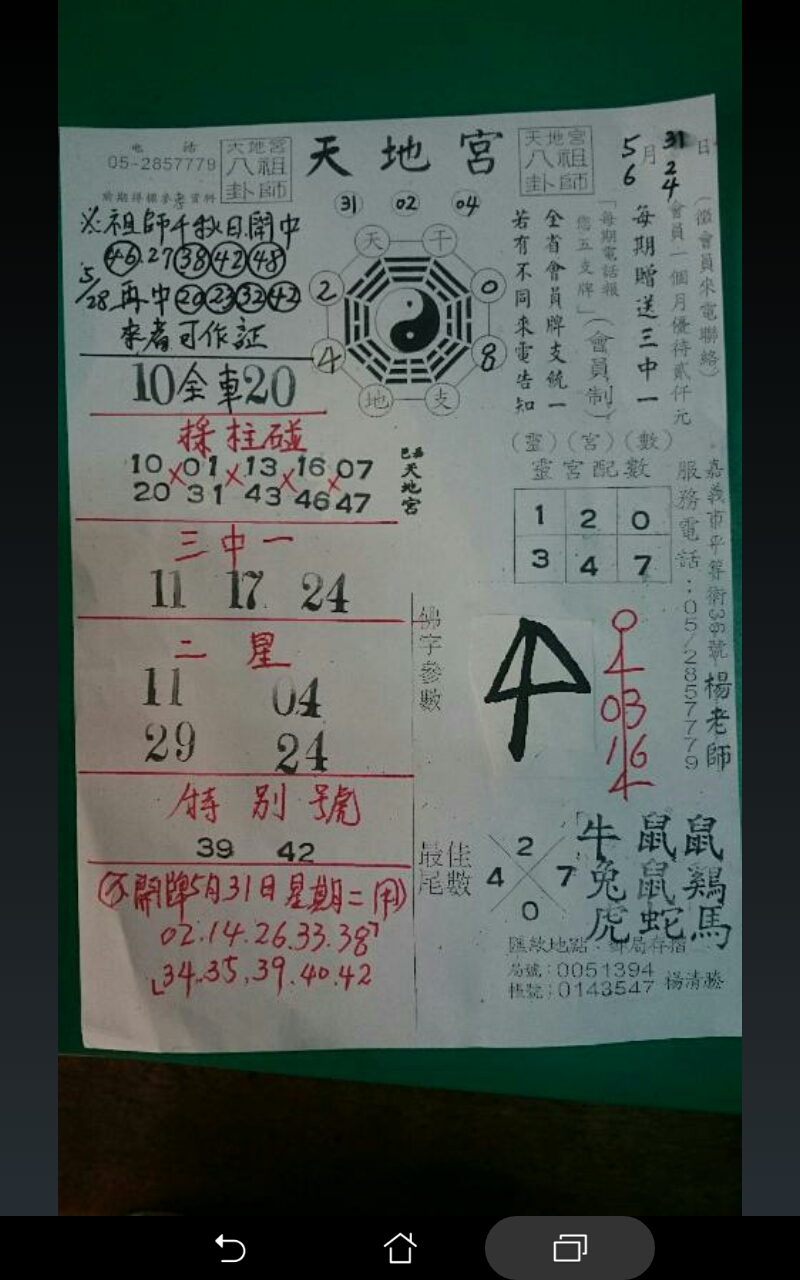 電話
05-2857779
天地宮
八祖
卦師
天地宮
天地宮
八祖
卦師
5月31日
6 2 4
前期得標參考資料
※祖師千秋日開中
46.27 38 42 48
5/28再中 20 23 32 42
來者可作証
31 02 04
天 干
2 0
4 8
地 支
10全車20
採柱碰
10×01×13×16×07
20 31 43 46 47
天地宮
三中一
11 17 24
二星
11 04
29 24
特別號
39 42
開牌5月31日星期二用
02.14.26.33.38
34.35.39.40.42
(徵會員來電聯絡)
會員一個月優待貳仟元
每期贈送三中一
「每期電話報
您五支牌」(會員制)
全省會員牌支統一
若有不同來電告知
(靈)(宮)(數)
靈宮配數
1 2 0
3 4 7
嘉義市平等街36號 楊老師
服務電話:05/2857779
佛字參數
03
16
最佳
尾數
2
4 7
0
牛鼠鼠
兔鼠鷄
虎蛇馬
匯款地點:郵局存摺
局號:0051394
帳號:0143547 楊清勝